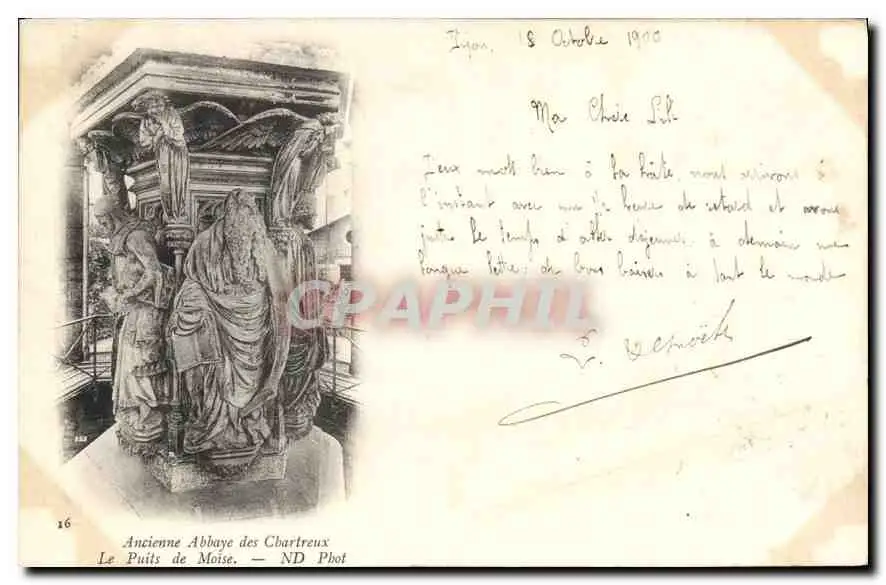 Dijon, 18 Octobre 1900
Ma Chère
Deux mots bien à la hâte, nous arrivons à
l'instant avec une ½ heure de retard et avons
juste le temps d'aller déjeuner, à demain une
longue lettre; de bons baisers à tout le monde
CPAPHIL
16
Ancienne Abbaye des Chartreux
Le Puits de Moïse. — ND Phot